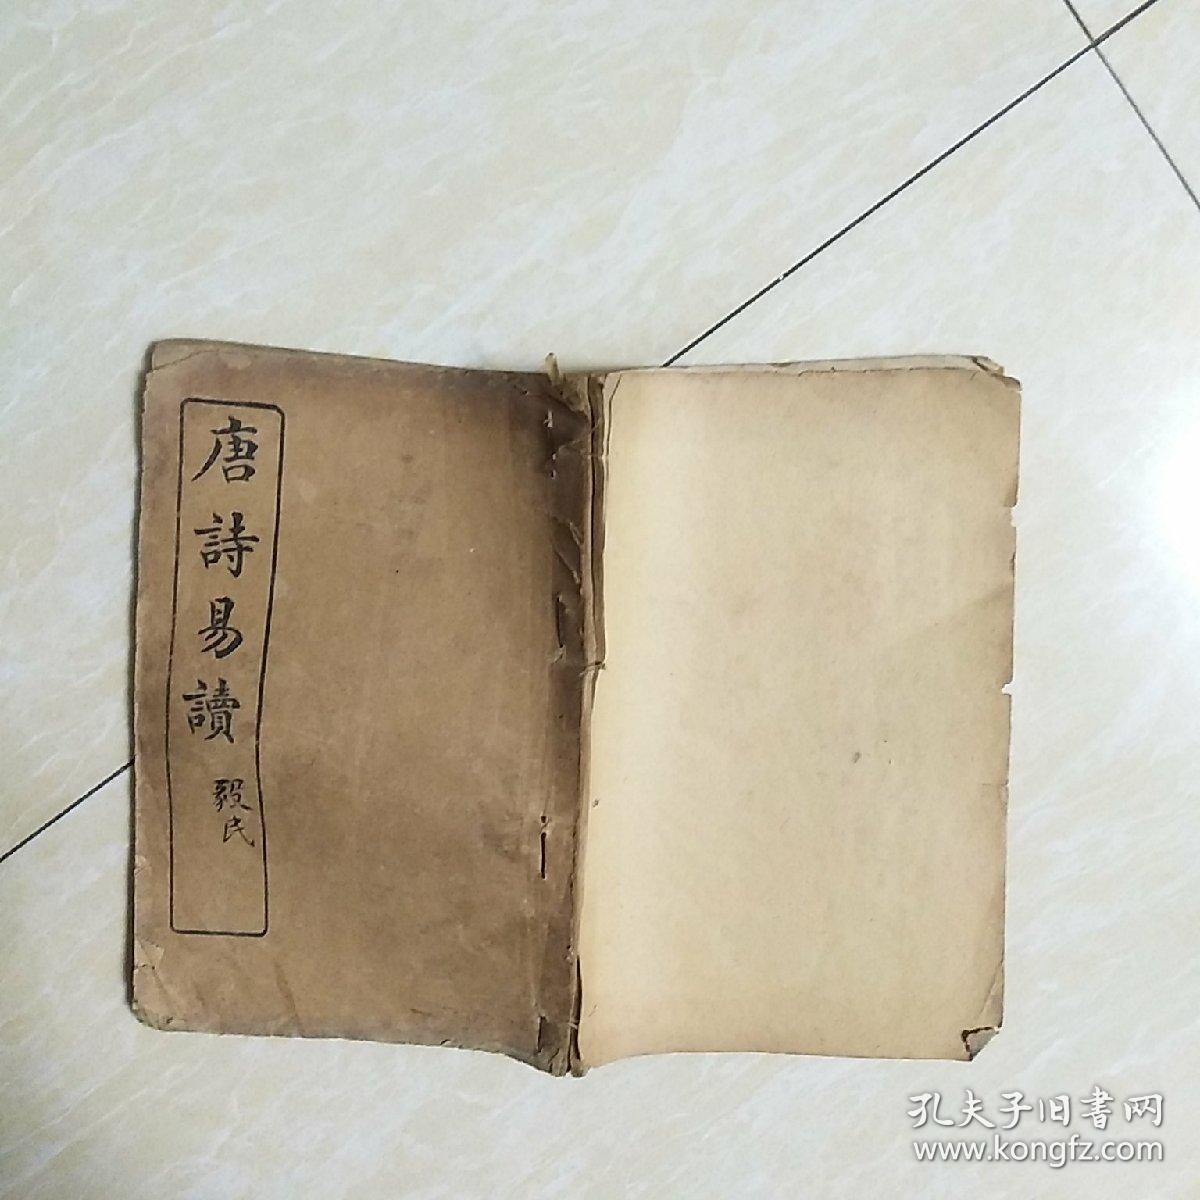 唐詩易讀
毅民
孔夫子旧書网
www.kongfz.com